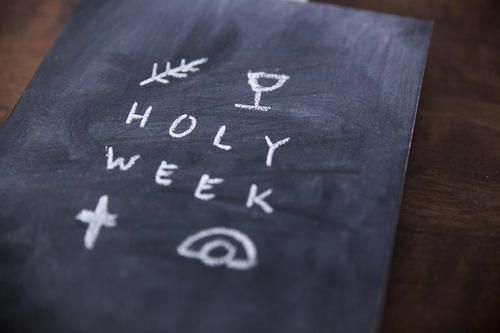 HOLY
WEEK